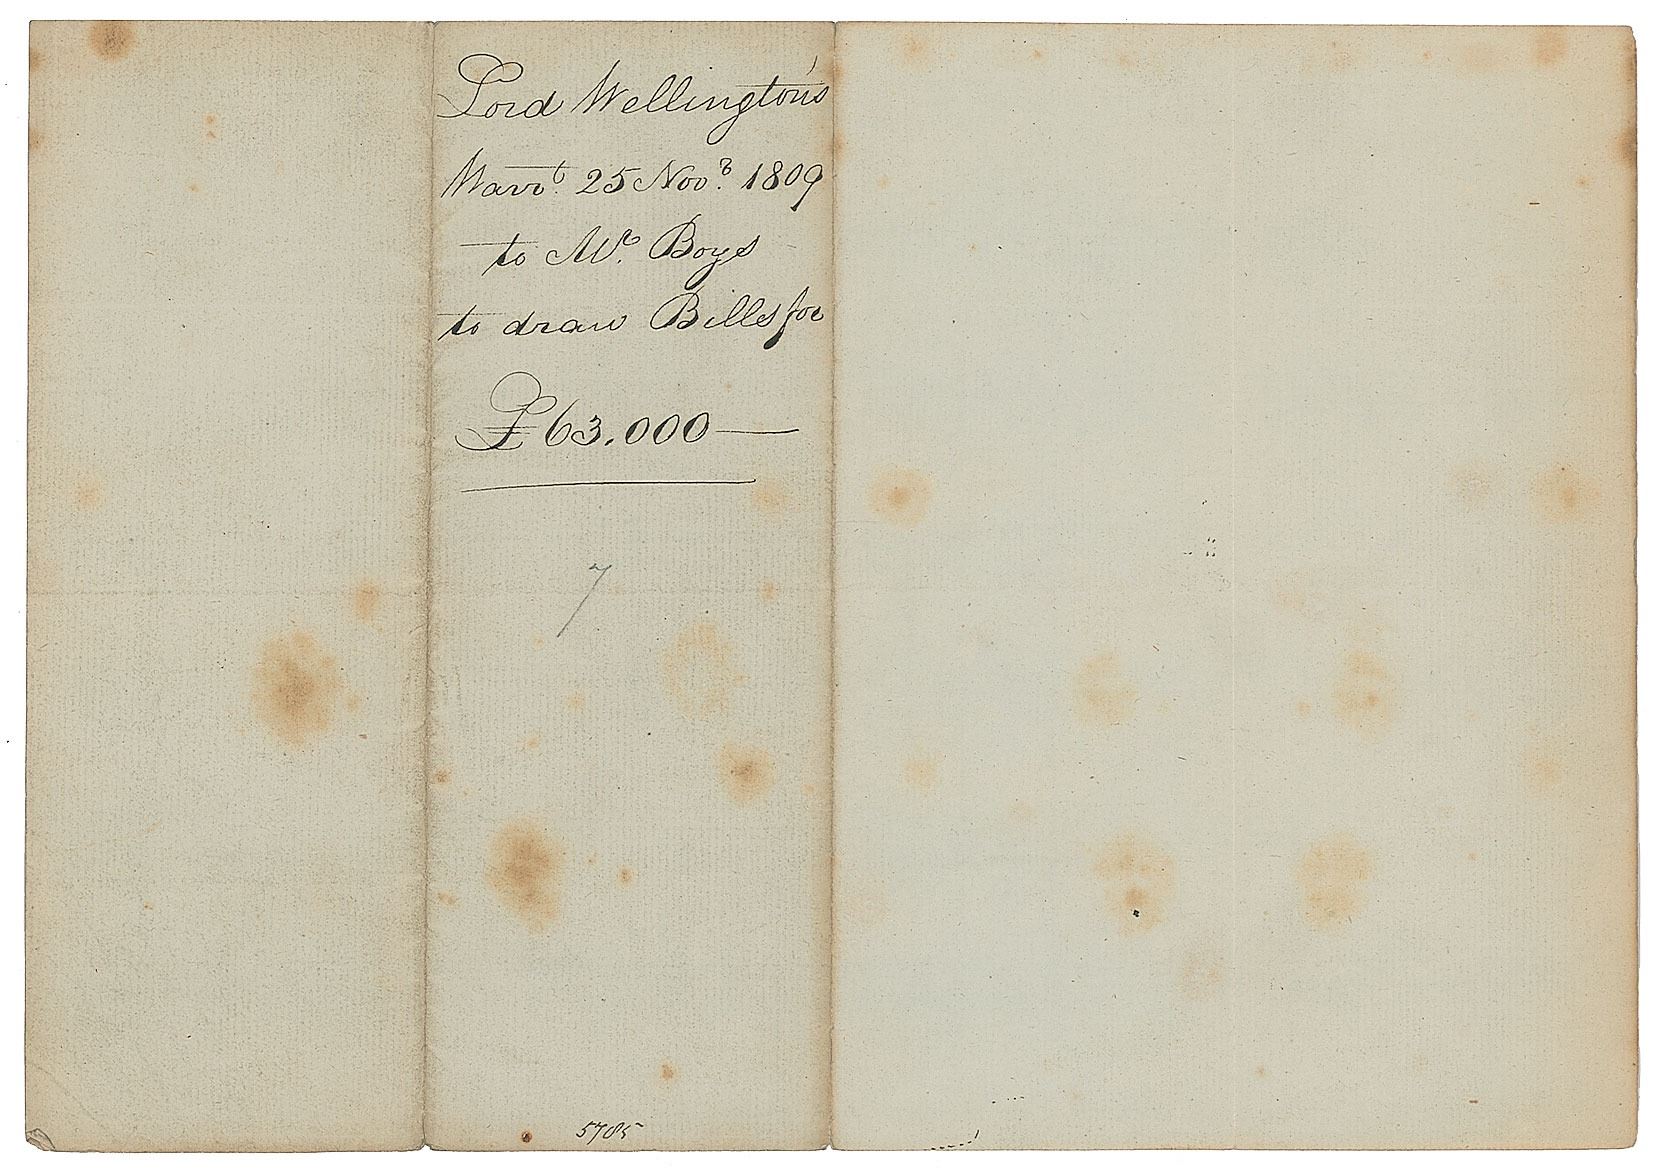 Lord Wellington's
Warrt. 25 Novr. 1809
to Mr. Boys
to draw Bills for
£63.000—
7
5785